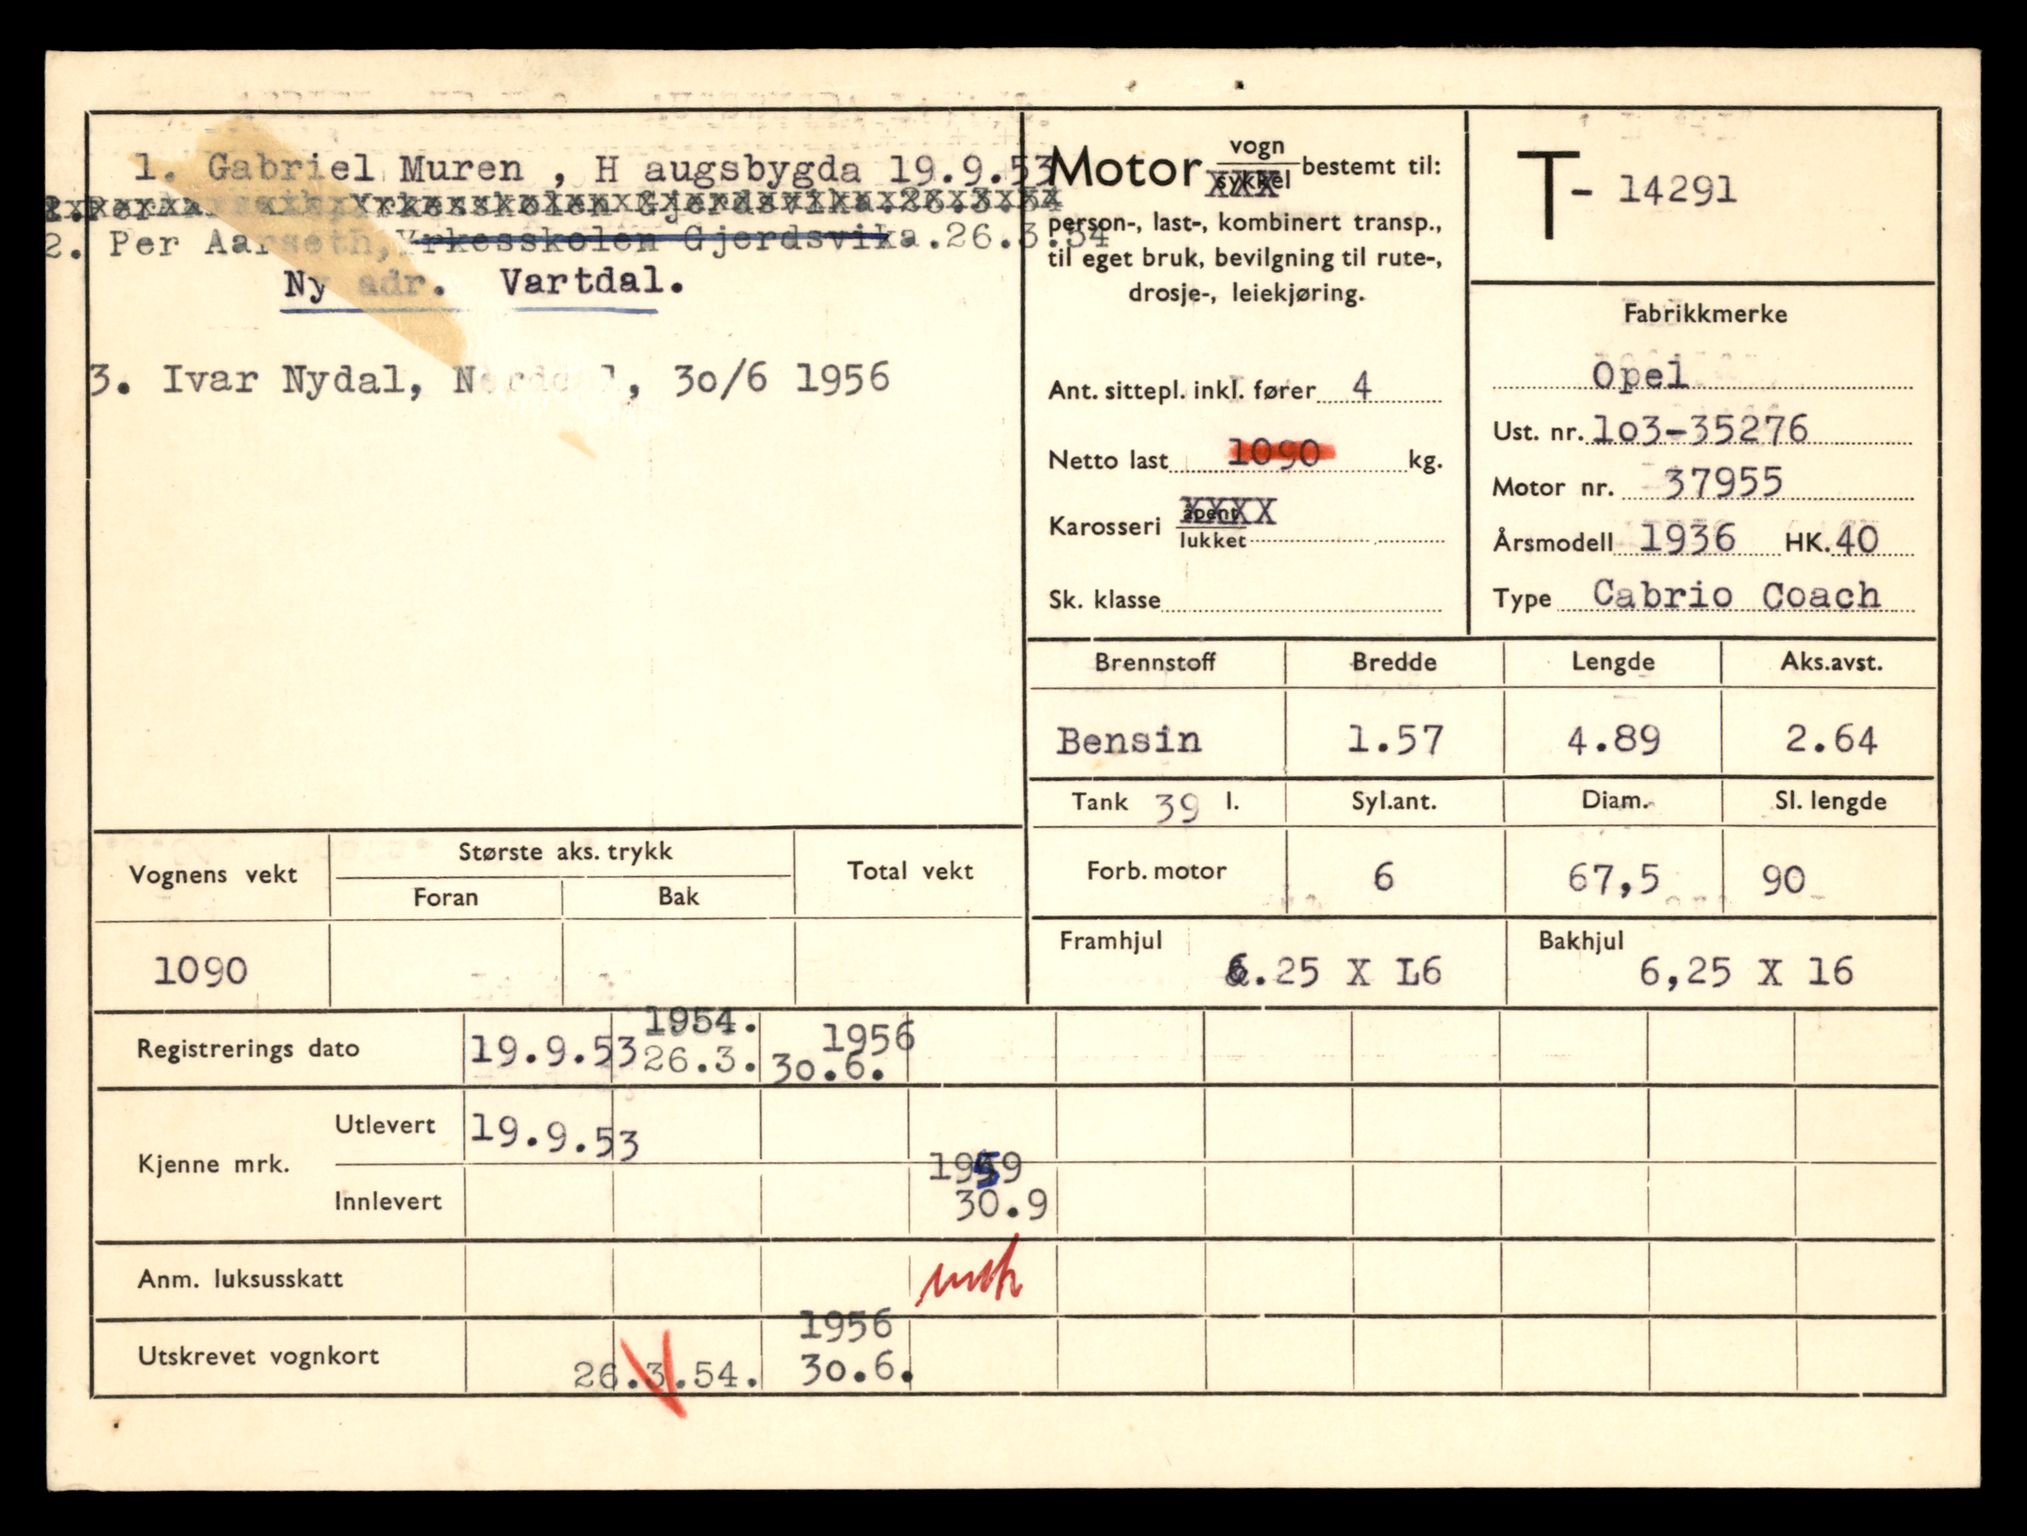 1. Gabriel Muren , H augsbygda 19.9.53
2. Per Aarseth, Yrkesskolen Gjerdsvika.26.3.54
Ny adr. Vartdal.
3. Ivar Nydal, 3o/6 1956
Motor vogn
sykkel bestemt til:
person-, last-, kombinert transp.,
til eget bruk, bevilgning til rute-,
drosje-, leiekjøring.
Ant. sittepl. inkl. fører 4
Netto last 1090 kg.
Karosseri åpent XXXX
lukket
Sk. klasse
T- 14291
Fabrikkmerke
Opel
Ust. nr. 1o3-35276
Motor nr. 37955
Årsmodell 1936 HK. 40
Type Cabrio Coach
Brennstoff Bredde Lengde Aks.avst.
Bensin 1.57 4.89 2.64
Tank 39 l. Syl.ant. Diam. Sl. lengde
Forb. motor 6 67,5 90
Framhjul 6.25 X L6 Bakhjul 6,25 X 16
Vognens vekt Største aks. trykk Total vekt
Foran Bak
1090
Registrerings dato 19.9.53 1954. 26.3. 1956 3o.6.
Kjenne mrk. Utlevert 19.9.53
Innlevert 1959 30.9
Anm. luksusskatt
Utskrevet vognkort 26.3.54. 1956 3o.6.